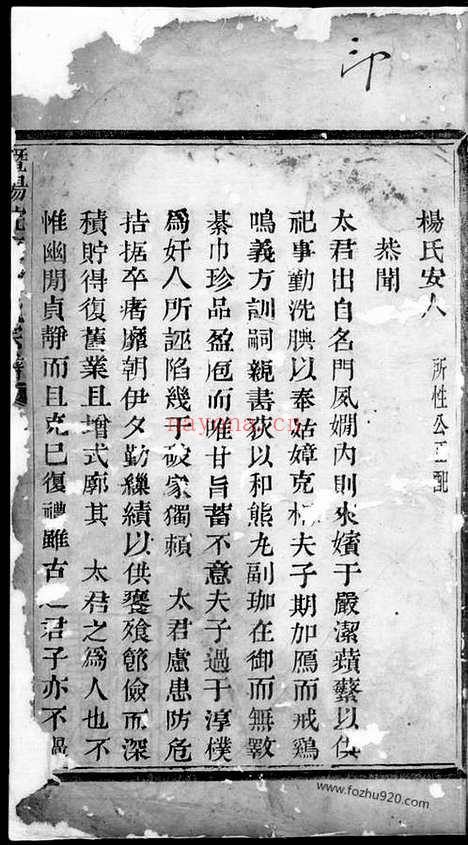 印
楊氏安人 所性公正配
恭聞
太君出自名門夙嫺內則來嬪于嚴潔蘋蘩以供
祀事勤洗腆以奉姑嫜克相夫子期加鴈而戒鷄
鳴義方訓嗣親書荻以和熊丸副珈在御而無斁
綦巾珍品盈庖而唯甘旨蓄不意夫子過于淳樸
為奸人所誣陷幾于破家獨賴 太君慮患防危
拮据卒瘏靡朝伊夕勤纖績以供饔飧節儉而深
積貯得復舊業且增式廓其 太君之為人也不
惟幽閒貞靜而且克已復禮雖古之君子亦不
暨陽
nayona.cn
www.fozhu920.com